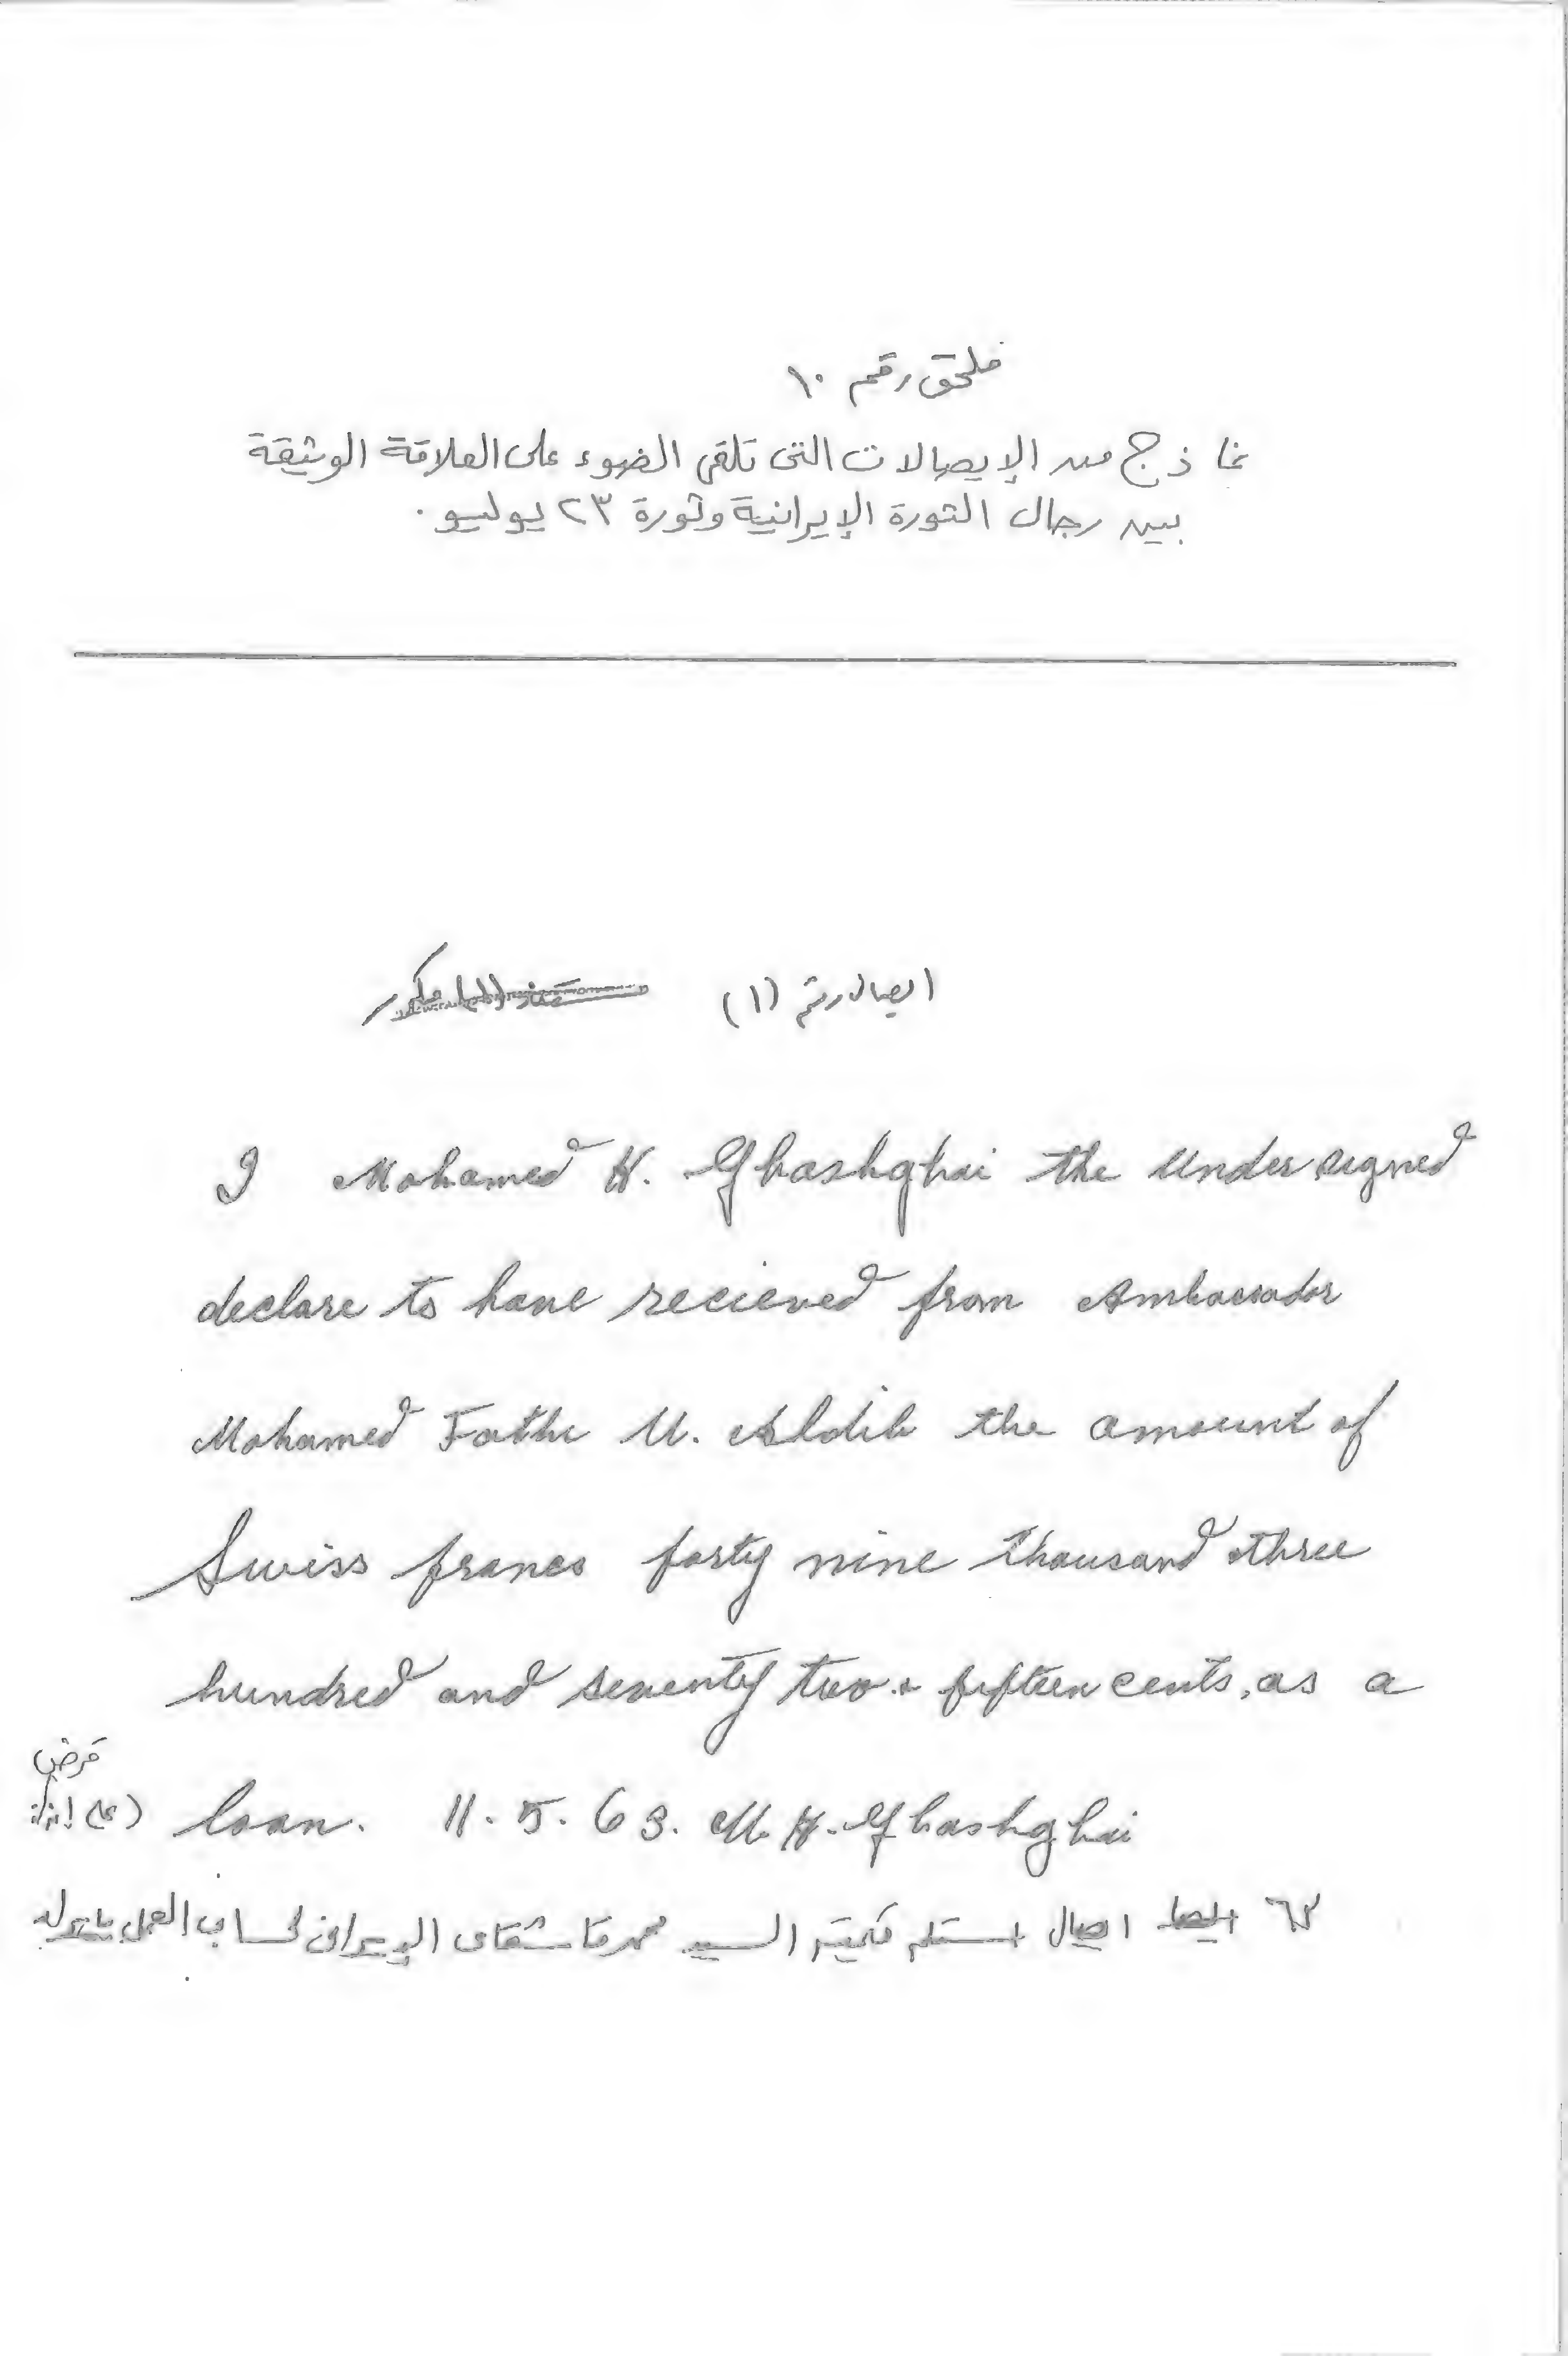 ملحق رقم ١٠
نماذج من الإيصالات التى تلقى الضوء على العلاقة الوثيقة
بين رجال الثورة الإيرانية وثورة ٢٣ يوليو.
ايصال رقم (١)
I Mohamed H. Ghashghai the Undersigned
declare to have recieved from Ambassador
Mohamed Fathi U. Aldib the amount of
Swiss francs forty nine thousand three
hundred and seventy two + fifteen cents, as a
قرض
loan. 11.5.63. M.H. Ghashghai
ايصال استلام السيد محمد قاشقاى الإيرانى لحساب العمل بايران